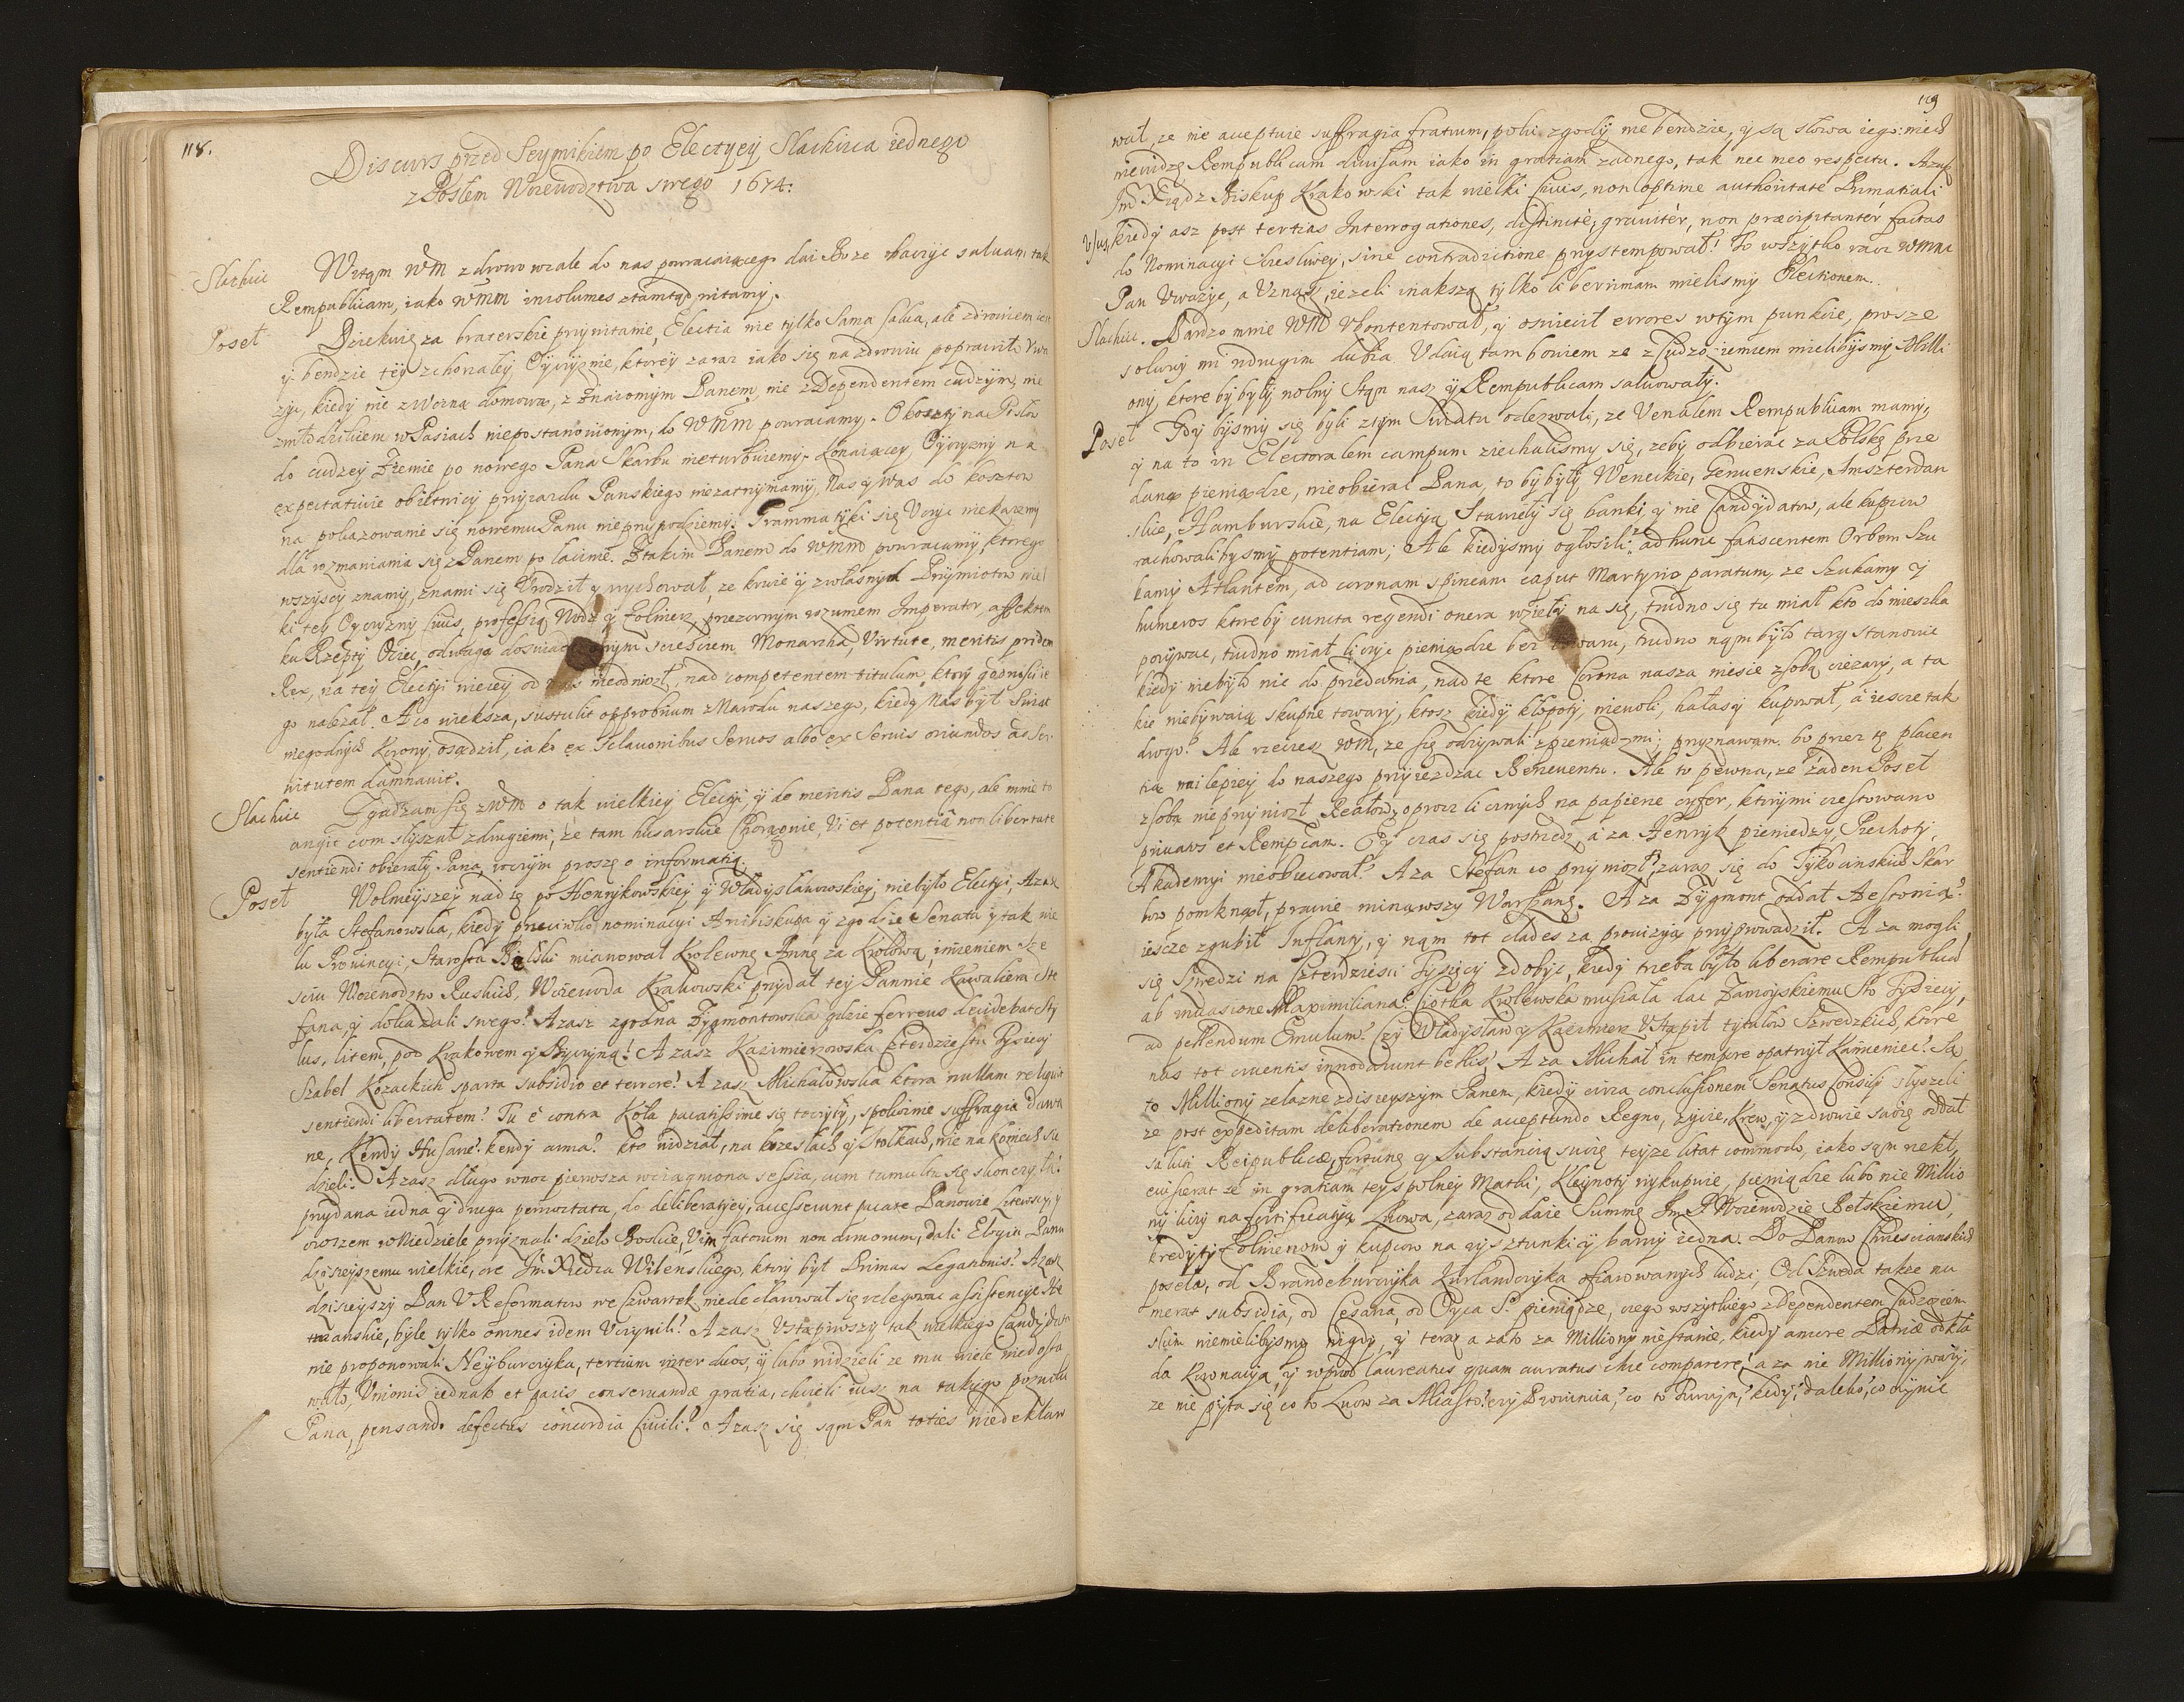 118.
Discurs przed Seymikiem po Electyey Slachcica iednego
z Posłem Woiewodztwa swego 1674:
Slachcic Witąm WM zdrowo wcale do nas powracaiącego dai Boze obaczyc saluam tak
Rempublicam, iako WMM incolumes ztamtąd witamy.
Poseł Dziekuię za braterskie przywitanie, Electia nie tylko Sama salua, ale zdrowiem
y bendzie tey zchorzałey Oyczyznie, ktorey zaraz iako się na zdrowiu poprawiło
kiedy nie z domową, z Znaiomym Panem, nie z Dependentem cudzym, nie
w Pasiach niepostanowionym, do WMM powracamy. O koszty na Posłow
do cudzey Ziemie po nowego Pana Skarbu nieturbuiemy. Konaiącey Oyczyzny na
expectatiuie obietnicy przyiazdu Panskiego niezatrzymamy, nas y was do kosztow
na pokazowanie się nowemu Panu nieprzypodziemy. Grammatyki się Uczyc niekazemy
dla rozmawiania się z Panem po łacinie. Ztakim Panem do WMM powracamy, ktorego
wszyscy znamy, znami się Urodził y wychował, ze krwie y zwłasnych Przymiotow
ki tey Oyczyzny Ciuis, professią Wodz y Zołnierz, przezornym rozumem Imperator, affektem
ku Rzeptey Ociec, odwagą sczesciem Monarcha, Virtute, meritis pridem
Rex, na tey Electyi wiecey od nieodniosł, nad competentem titulum, ktory godnosci ie
go nalezał. A co większa, sustulit opprobrium z Narodu naszego, kiedy nas był Swiat
niegodnych Korony osądził, iako ex Sclauonibus Seruos albo ex Seruis oriundos ad Ser
uitutem damnauit.
Slachcic Zgadzam się z WM o tak wielkiey Electyi, y de meritis Pana tego, ale mnie to
angit com słyszał z drugiemi, ze tam husarskie Chorągwie, Vi et potentia non libertate
sentiendi obierały Pana, wczym proszę o informatią.
Poseł Wolnieyszey nad tę po Henrykowskiey y Władysławowskiey, niebyło Electyi, Azasz
była Stefanowska, kiedy przeciwko nominacyi Arcibiskupa y zgodzie Senatu y tak wie
lu Prouincyi, Starosta Bełski mianował Krolewnę Annę za Krolową, imieniem sze
sciu Woiewodztw Ruskich, Woiewoda Krakowski przydał tey Pannie Kawaliera Ste
fana, y dokazali swego? Azasz zgodna Zygmontowska gdzie ferreus decidebat Sty
lus, litem, pod Krakowem y Byczyną? Azasz Kazimierzowska Czterdziestu Tysięcy
Szabel Kozackich sparta subsidio et terrore? Azasz Michałowska ktora nullam reliquit
sentiendi libertatem? Tu è contra Koła pacatissime się toczyły, społecznie suffragia dawa
ne, Kendy Husarie? kendy arma? kto widział, na krzesłach y Stołkach, nie na koniech sie
dzieli? Azasz długo wnoc pierwsza wciągniona sessia, cum tumultu się skonczyła?
przydana iedna y druga pernoctata, do deliberatiey, accesserunt pacate Panowie Litewscy, y
wieczorem w Niedziele przyznali dzieło Boskie, Vim fatorum non armorum, dali Elogia Panu
dzisieyszemu wielkie, ore Jm Xiedza Wilenskiego, ktory był Primas Legationis? Azasz
dzisieyszy Pan V Reformatow we Czwartek niedeclarował się relegowac assistencyie He
tmanskie, byle tylko omnes idem Uczynili? Azasz Ustąpiwszy tak wielkiego Candydata
nie proponowali Neyburczyka, tertium inter duos, y lubo widzieli ze mu wiele niedosta
wało, Unionis iednak et pacis conseruandæ gratia, chcieli iusz na takiego pozwolic
Pana, pensando defectus concordia Ciuili? Azasz się sąm Pan toties niedeklaro
119
wał, ze nie acceptuie suffragia fratrum, poki zgody nie bendzie, y są słowa iego: niech
niewidzę Rempublicam diuisam iako in gratiam zadnego, tak nec meo respectu. Azasz
Jm Xiądz Biskup Krakowski tak wielki Ciuis, non optime authoritate Primatiali
Usus, kiedy asz post tertias Interrogationes, distincté, grauitér, non præcipitantér factas
do Nominacyi Sczesliwey, sine contradictione przystempował? To wszytko racz WMM
Pan Uwazyc, a Uznasz, iezeli inakszą tylko liberrimam mielismy Electionem.
Slachcic. Bardzo mnie WM Ukontentował, y oswiecił errores wtym punkcie, prosze
soluuy mi wdrugim dubia Udaią tam bowiem ze z Cudzoziemcem mielibysmy Milli
ony, ktore by były wolny Stąn nasz y Rempublicam saluowały.
Poseł Gdy bysmy się byli ztym Swiatu odezwali, ze Venalem Rempublicam mamy,
y na to in Electoralem campum ziechalismy się, zeby odbierac za Polskę prze
daną pieniądze, nieobierac Pana, to by były Weneckie, Genuenskie, Amszterdan
skie, Hamburskie, na Electyą Stawiely się banki, y nie Candydatow, ale kupcow
rachowalibysmy potentiam; Ale kiedysmy ogłosili, ad hunc fatiscentem Orbem Szu
kamy Atlantem, ad coronam spineam caput Martyrio paratum, ze Szukamy y
humeros ktore by cuncta regendi onera wzieły na się, trudno się tu miał kto do mieszka
porywac, trudno miał liczyc pieniądze bez towaru, trudno nąm było targ stanowic
kiedy niebyło nic do przedania, nad te ktore Corona nasza niesie zsobą ciezary, a ta
kie niebywaią skupne towary, ktosz kiedy kłopoty, niewoli, hałasy kupował, a iescze tak
drogo? Ale rzeczesz WM, ze się odzywali zpieniądzmi; przyznawąm. bo przez tę placen
tią nailepiey do naszego przyiezdzac Beneuentu. Ale to pewna, ze zaden Poseł
zsobą nieprzyniosł Reałow, oprocz licznych na papierze cyfer, ktorymi czestowano
priuatos et Rempcam. Czy czas się postrzedz, a za Henryk pieniedzy, Piechoty,
Akademyi nieobiecował? A za Stefan co przyniosł? zaraz się do Tykocinskich Skar
bow pomknął, prawie minąwszy Warszawę. A za Zygmont oddał Aestonią?
iescze zgubił Inflanty, y nąm tot clades za prouizyą przyprowadził. A za mogli
się Szwedzi na Czterdziesci Tysięcy zdobyc, kiedy trzeba było liberare Rempublicam
ab inuasione Maximiliana? Ciotka Krolewska musiała dac Zamoyskiemu Sto Tysiecy,
ad pellendum Emulum? Czy Władysław y Kazimierz Ustąpił tytułow Szwedzkich, ktore
nas tot cruentis innodarunt bellis? A za Michał in tempore opatrzył Kamieniec? Są
to Milliony zelazne zdisieyszym Panem, kiedy circa conclusionem Senatus Consily słyszeli
ze post expeditam deliberationem de acceptando Regno, zycie, krew, y zdrowie swoię oddał
saluti Reipublicæ, fortunę y Substancią swoię teyze litat commodo, iako sąm rzekł,
euiscerat se in gratiam tey spolney Matki, Kleynoty wykupuie, pieniądze lubo nie Millio
ny liczy na fortificatyą Lwowa, zaraz oddaie Summę Jm P Woiewodzie Bełskiemu,
kredyty Zołnierzom y kupcow na rysztunki y barwy iedna. Do Panow Chrescianskich
poseła, od Brandeburczyka Kurlandczyka ofiarowanych ludzi, Od Szweda takze nu
merat subsidia, od Cesarza, od Oyca S. pieniądze, czego wszytkiego z Dependentem Cudzoziem
skim niemielibysmy nigdy, y teraz a zato za Milliony niestanie, kiedy amore Patriæ odkła
da Koronacyą, y wprzod laureatus quam auratus chce comparere? a za nie Milliony wazy,
ze nie pyta się co to Lwow za Miasto? czy Prouincia? co to Turczyn? kędy? daleko? co czynic